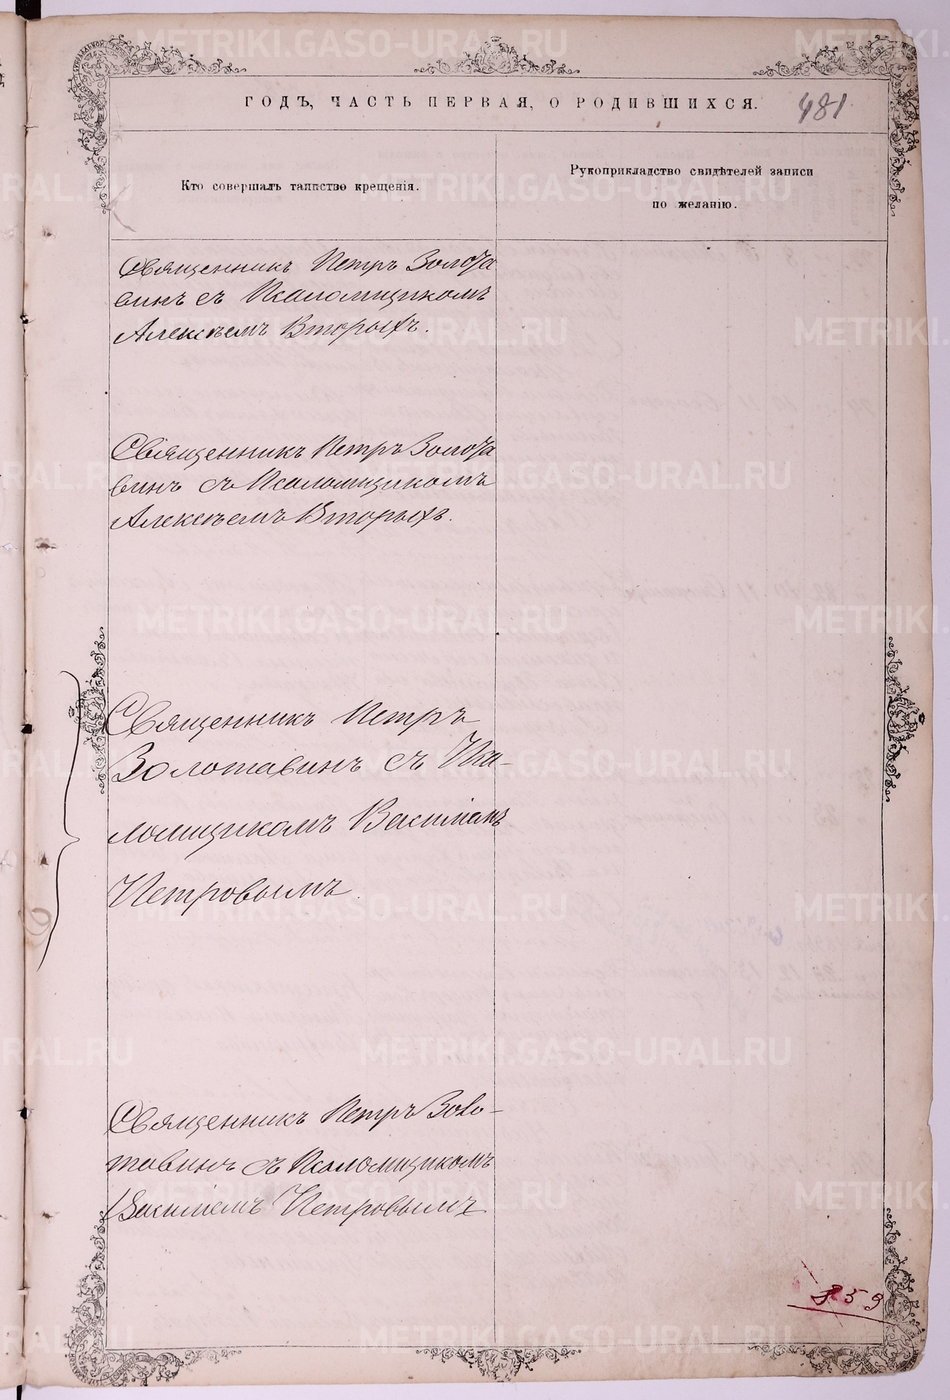 ГОДЪ, ЧАСТЬ ПЕРВАЯ, О РОДИВШИХСЯ.
481
Кто совершалъ таинство крещенія.
Рукоприкладство свидѣтелей записи
по желанію.
Священникъ Петръ Золота
винъ съ Псаломщикомъ
Алексѣемъ Вторыхъ.
Священникъ Петръ Золота
винъ съ Псаломщикомъ
Алексѣемъ Вторыхъ.
Священникъ Петръ
Золотавинъ съ Пса-
ломщикомъ Василіемъ
Петровымъ.
Священникъ Петръ Золо-
тавинъ съ Псаломщикомъ
Василіемъ Петровымъ
METRIKI.GASO-URAL.RU